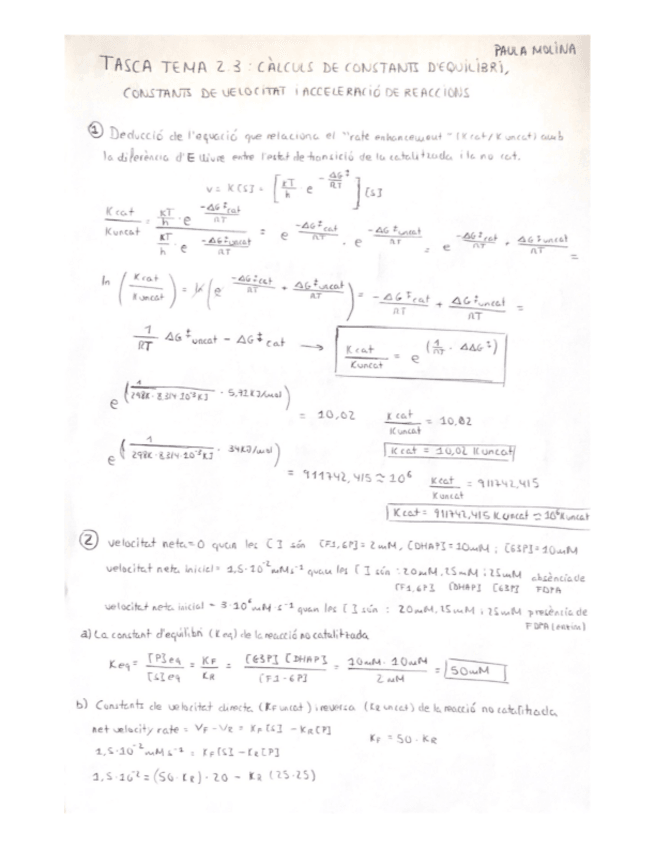 PAULA MOLINA
TASCA TEMA 2.3: CÀLCULS DE CONSTANTS D'EQUILIBRI,
CONSTANTS DE VELOCITAT I ACCELERACIÓ DE REACCIONS
① Deducció de l'equació que relaciona el "rate enhancement" (Kcat/Kuncat) amb
la diferència d'E lliure entre l'estat de transició de la catalitzada i la no cat.
v = K[S] = [KT/h · e^(-ΔG‡/RT)] [S]
Kcat/Kuncat = (KT/h · e^(-ΔG‡cat/RT))/(KT/h · e^(-ΔG‡uncat/RT)) = e^(-ΔG‡cat/RT) · e^(-ΔG‡uncat/RT) = e^(-ΔG‡cat/RT + ΔG‡uncat/RT) =
ln (Kcat/Kuncat) = ln (e^(-ΔG‡cat/RT + ΔG‡uncat/RT)) = -ΔG‡cat/RT + ΔG‡uncat/RT =
1/RT ΔG‡uncat - ΔG‡cat → Kcat/Kuncat = e^(1/RT · ΔΔG‡)
e^(1/(298K · 8,314·10⁻³KJ) · 5,71KJ/mol) = 10,02 Kcat/Kuncat = 10,02
Kcat = 10,02 Kuncat
e^(1/(298K · 8,314·10⁻³KJ) · 34KJ/mol) = 911742,415 ≃ 10⁶ Kcat/Kuncat = 911742,415
Kcat = 911742,415 Kuncat ≃ 10⁶Kuncat
② velocitat neta = 0 quan les [ ] són [F1,6P] = 2mM, [DHAP] = 10mM ; [G3P] = 10mM
velocitat neta inicial = 1,5·10⁻² mM s⁻¹ quan les [ ] són : 20mM, 25mM i 25mM absència de
[F1,6P] [DHAP] [G3P] FDPA
velocitat neta inicial = 3·10⁶ mM·s⁻¹ quan les [ ] són : 20mM, 25mM i 25mM presència de
FDPA (enzim)
a) La constant d'equilibri (Keq) de la reacció no catalitzada
Keq = [P]eq/[S]eq = KF/KR = [G3P] [DHAP]/[F1-6P] = 10mM · 10mM/2mM = 50mM
b) Constants de velocitat directe (KF uncat) i reversa (KR uncat) de la reacció no catalitzada
net velocity rate = VF - VR = KF[S] - KR[P] KF = 50 · KR
1,5·10⁻² mM s⁻¹ = KF[S] - KR[P]
1,5·10⁻² = (50·KR)·20 - KR (25·25)